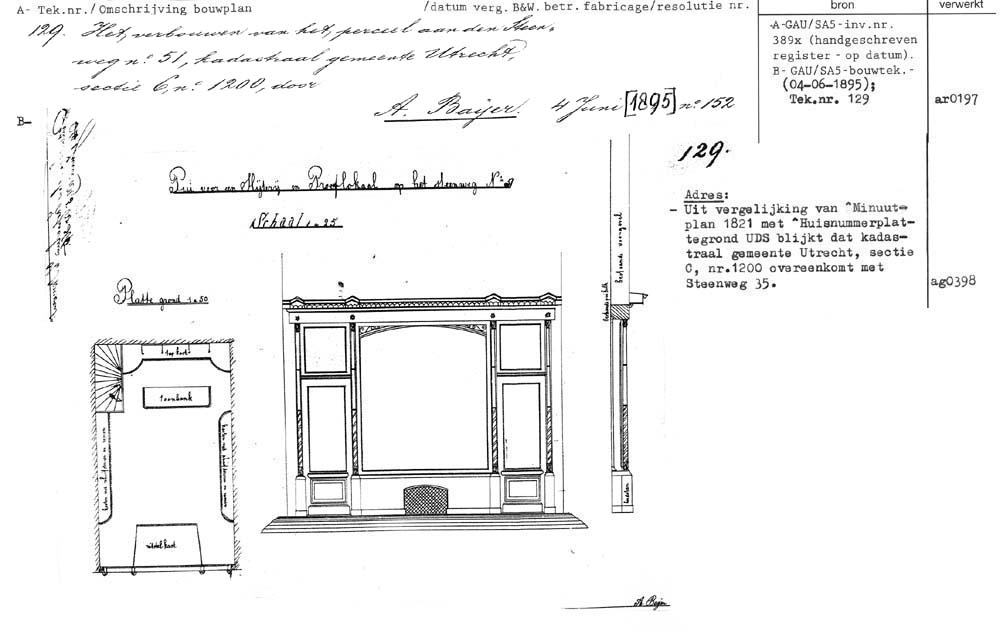 A- Tek.nr./Omschrijving bouwplan /datum verg. B&W. betr. fabricage/resolutie nr.
bron
verwerkt
129. Het verbouwen van het perceel aan den Steen-
weg nº 51, kadastraal gemeente Utrecht,
sectie C, nº 1200, door
A. Baijer. 4 Juni [1895] nº 152
A-GAU/SA5-inv.nr.
389x (handgeschreven
register - op datum).
B- GAU/SA5-bouwtek.-
(04-06-1895);
Tek.nr. 129
ar0197
B-
129.
Pui voor een Slijterij en Proeflokaal op het steenweg Nº
Schaal 1 à 25
Platte grond 1 à 50
toonbank
Adres:
- Uit vergelijking van ^Minuut-
plan 1821 met ^Huisnummerplat-
tegrond UDS blijkt dat kadas-
traal gemeente Utrecht, sectie
C, nr.1200 overeenkomt met
Steenweg 35.
ag0398
A. Baijer